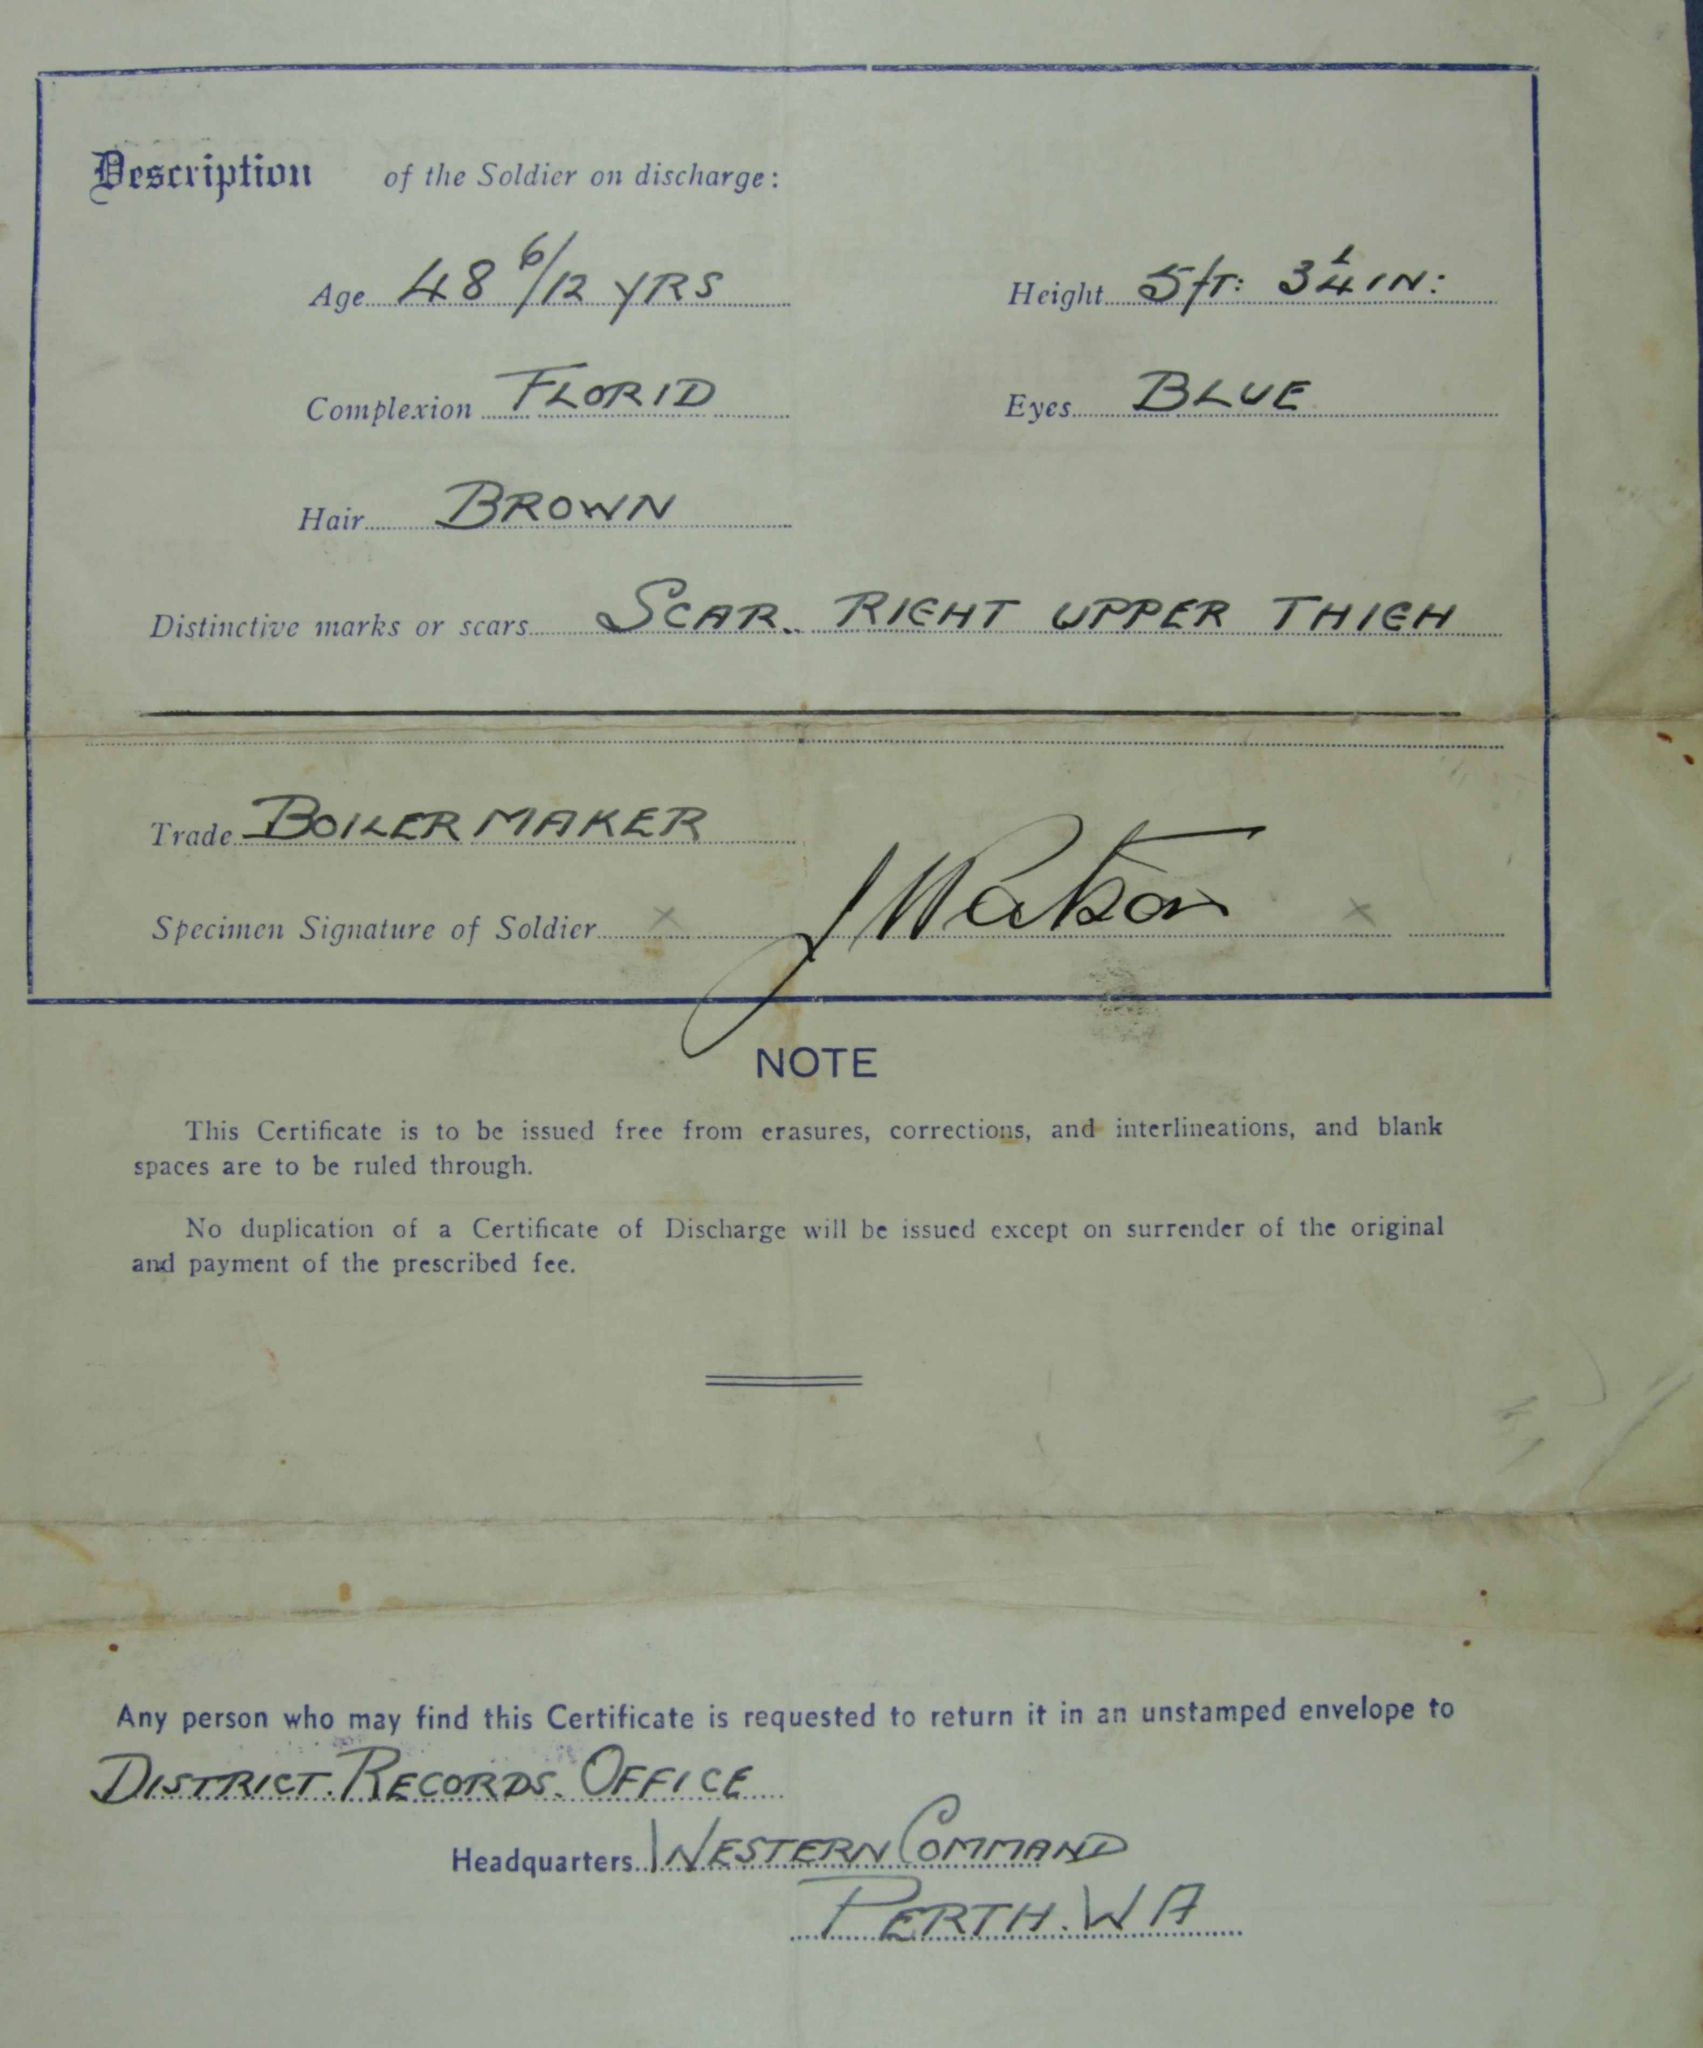 Description of the Soldier on discharge:
Age 48 6/12 YRS Height 5ft: 3 1/4 IN:
Complexion FLORID Eyes BLUE
Hair BROWN
Distinctive marks or scars SCAR. RIGHT UPPER THIGH
Trade BOILER MAKER
Specimen Signature of Soldier x J Watson x
NOTE
This Certificate is to be issued free from erasures, corrections, and interlineations, and blank
spaces are to be ruled through.
No duplication of a Certificate of Discharge will be issued except on surrender of the original
and payment of the prescribed fee.
Any person who may find this Certificate is requested to return it in an unstamped envelope to
DISTRICT. RECORDS. OFFICE
Headquarters WESTERN COMMAND
PERTH. WA